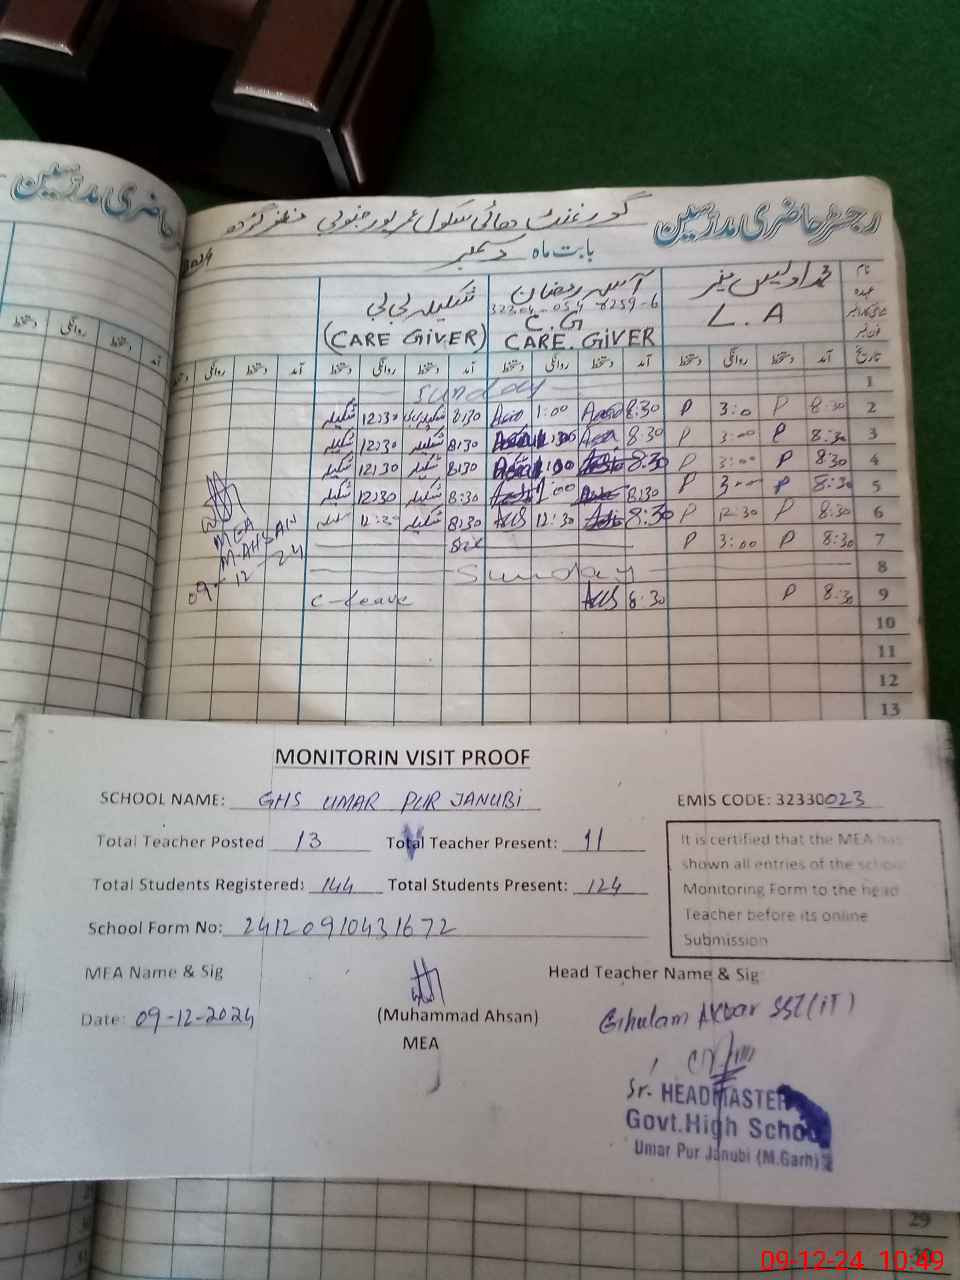 حاضری مدرسین
رجسٹر حاضری مدرسین
گورنمنٹ ہائی سکول عمر پور جنوبی مظفر گڑھ
بابت ماہ دسمبر
2024
نام
عہدہ
شکیلہ بی بی
32304-
8259-6
C.G
L.A
(CARE GIVER) CARE.GIVER
تاریخ
آمد دستخط روانگی دستخط آمد دستخط روانگی دستخط آمد دستخط روانگی دستخط
دستخط روانگی دستخط آمد
Sunday 1
شکیلہ 12:30 8:30 1:00 8:30 P 3:0 P 8:30 2
شکیلہ 12:30 شکیلہ 8:30 8:30 P 3:00 P 8:30 3
شکیلہ 12:30 شکیلہ 8:30 8:30 P 3:00 P 8:30 4
شکیلہ 12:30 شکیلہ 8:30 1:00 8:30 P 3:00 P 8:30 5
شکیلہ 8:30 12:30 8:30 P 12:30 P 8:30 6
P 3:00 P 8:30 7
Sunday 8
C-leave 8:30 P 8:30 9
10
11
12
13
MEA
M.AHSAN
09-12-24
MONITORIN VISIT PROOF
SCHOOL NAME: GHS UMAR PUR JANUBI EMIS CODE: 32330023
Total Teacher Posted 13 Total Teacher Present: 11
Total Students Registered: 144 Total Students Present: 124
School Form No: 24120910431672
It is certified that the MEA has
shown all entries of the school
Monitoring Form to the head
Teacher before its online
Submission
MEA Name & Sig Head Teacher Name & Sig
Date: 09-12-2024 (Muhammad Ahsan) Ghulam Akbar SST(IT)
MEA
Sr. HEADMASTER
Govt.High School
Umar Pur Janubi (M.Garh)
29
30
09-12-24 10:49